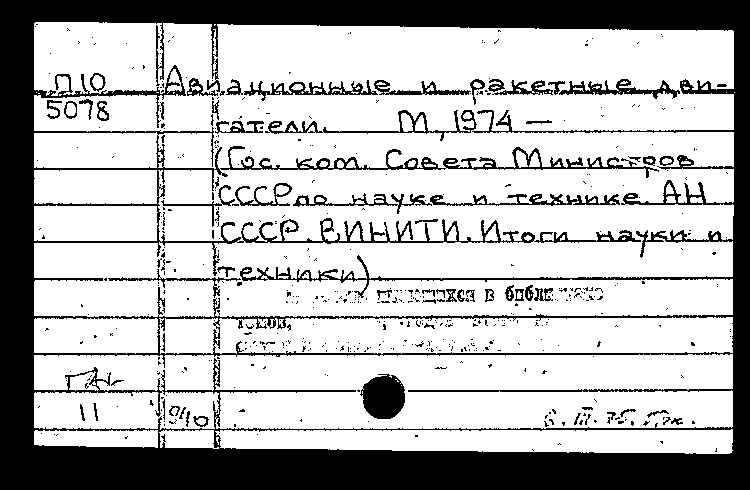 П10
5078
Авиационные и ракетные дви-
гатели. М., 1974 —
(Гос. ком. Совета Министров
СССР по науке и технике. АН
СССР. ВИНИТИ. Итоги науки и
техники).
имеющихся в библиотеке
томов,
11
940
6. III. 75.